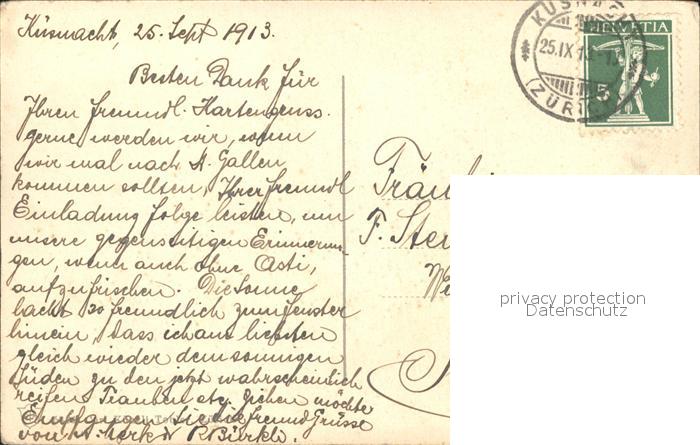 Küsnacht, 25. Sept 1913.
Besten Dank für
Ihren freundl. Kartengruss.
gerne werden wir, wenn
wir mal nach St. Gallen
kommen sollten, Ihrer freundl
Einladung folge leisten, um
unsere gegenseitigen Erinnerun-
gen, wenn auch ohne Asti,
aufzufrischen. Die Sonne
lacht so freundlich zum Fenster
hinein, dass ich am liebsten
gleich wieder dem sonnigen
Süden zu den jetzt wahrscheinlich
reifen Trauben etc. ziehen möchte
Empfangen Sie die freundl Grüsse
von P. Bürkli.
KÜSNACHT
25.IX.13
(ZÜRICH)
HELVETIA
5
Fräu
F. Ste
We
privacy protection
Datenschutz